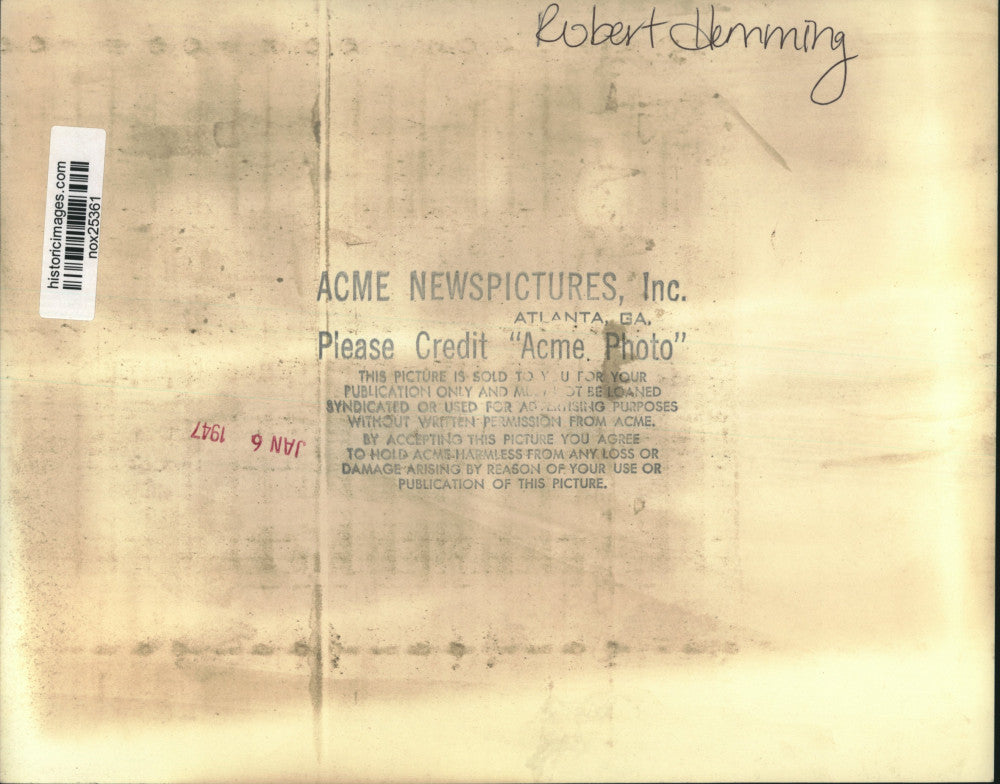 Robert Hemming
historicimages.com
nox25361
ACME NEWSPICTURES, Inc.
ATLANTA, GA.
Please Credit "Acme Photo"
THIS PICTURE IS SOLD TO Y U FOR YOUR
PUBLICATION ONLY AND BE LOANED
SYNDICATED OR USED FOR ADVERTISING PURPOSES
WITHOUT WRITTEN PERMISSION FROM ACME.
BY ACCEPTING THIS PICTURE YOU AGREE
TO HOLD ACME HARMLESS FROM ANY LOSS OR
DAMAGE ARISING BY REASON OF YOUR USE OR
PUBLICATION OF THIS PICTURE.
JAN 6 1947